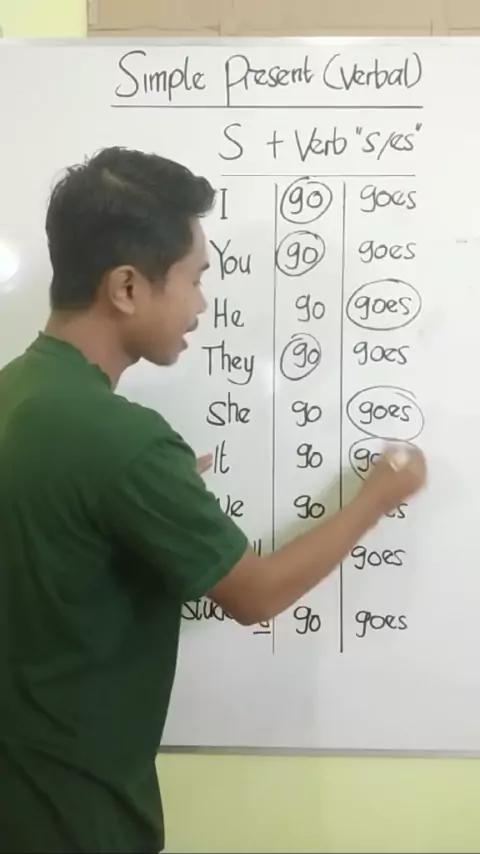 Simple Present (Verbal)
S + Verb "s/es"
I go goes
You go goes
He go goes
They go goes
She go goes
It go
go
goes
go goes